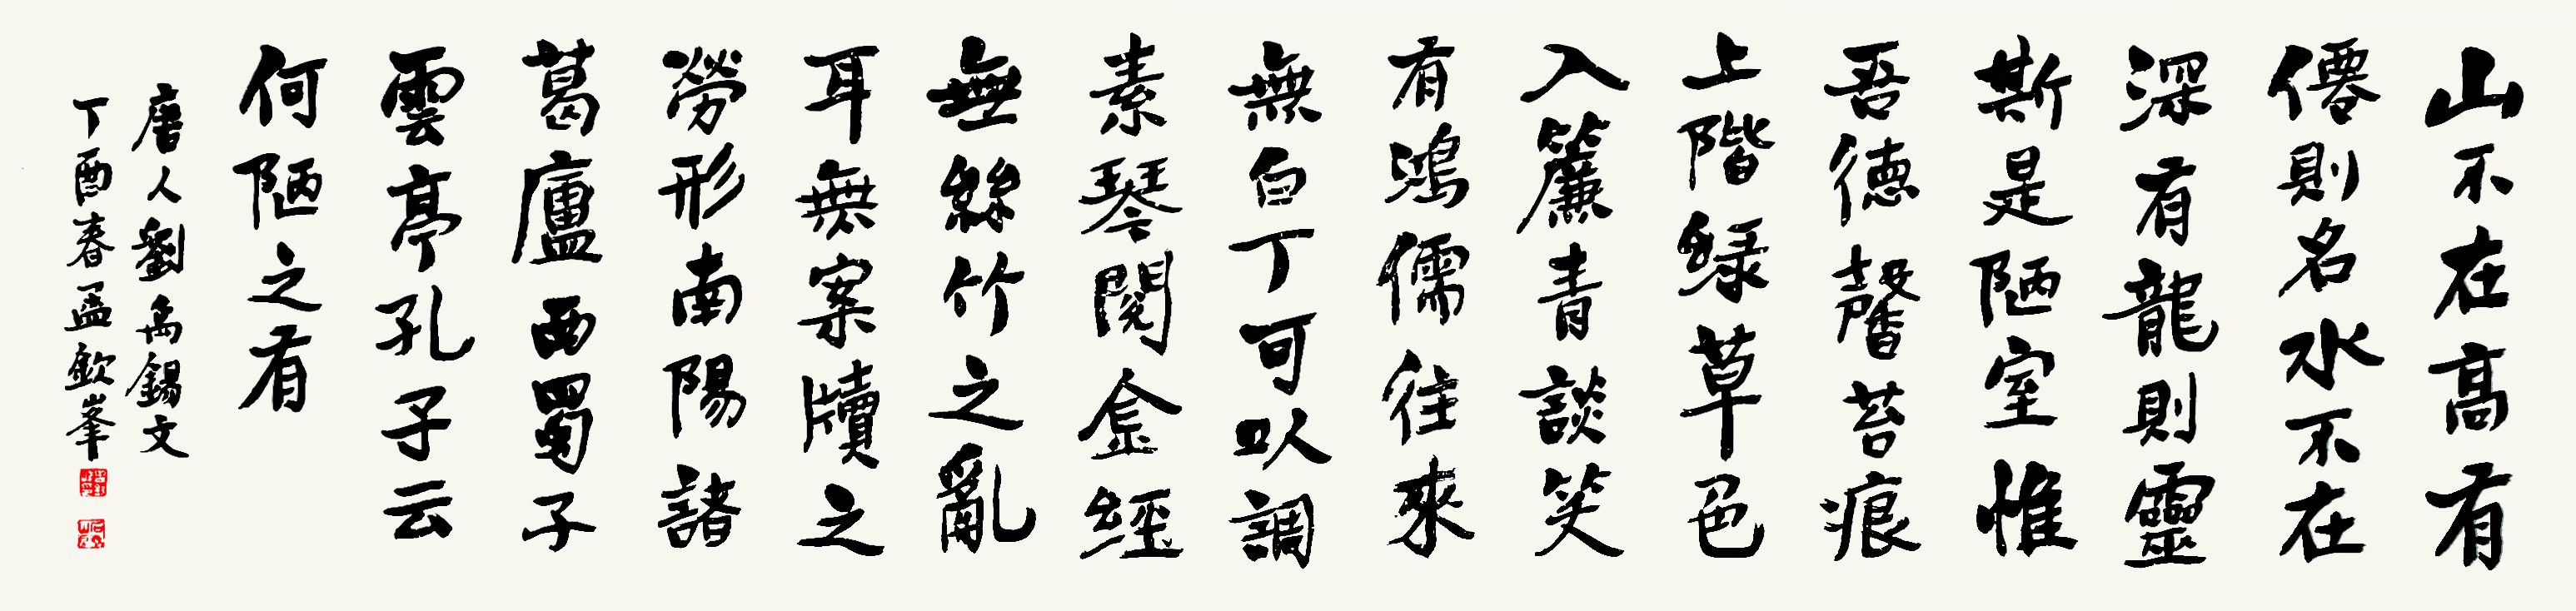 山不在高有
僊則名水不在
深有龍則靈
斯是陋室惟
吾德馨苔痕
上階緑草色
入簾青談笑
有鴻儒往來
無白丁可以調
素琴閱金經
無絲竹之亂
耳無案牘之
勞形南陽諸
葛廬西蜀子
雲亭孔子云
何陋之有
唐人劉禹錫文
丁酉春孟欽峯